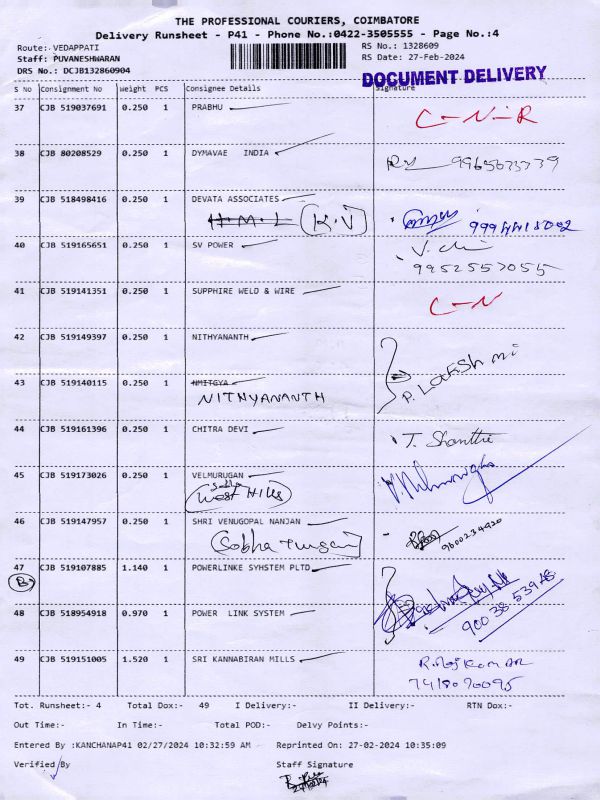 THE PROFESSIONAL COURIERS, COIMBATORE
Delivery Runsheet - P41 - Phone No.:0422-3505555 - Page No.:4
Route: VEDAPPATI RS No.: 1328609
Staff: PUVANESHWARAN RS Date: 27-Feb-2024
DRS No.: DCJB132860904
DOCUMENT DELIVERY
S No Consignment No Weight PCS Consignee Details Signature
37 CJB 519037691 0.250 1 PRABHU C-N-R
38 CJB 80208529 0.250 1 DYMAVAE INDIA
39 CJB 518498416 0.250 1 DEVATA ASSOCIATES
H.M.L (K.V)
40 CJB 519165651 0.250 1 SV POWER
9952557055
41 CJB 519141351 0.250 1 SUPPHIRE WELD & WIRE C-N
42 CJB 519149397 0.250 1 NITHYANANTH
P. LakSh mi
43 CJB 519140115 0.250 1 NMITGYA
NITHYANANTH
44 CJB 519161396 0.250 1 CHITRA DEVI T. Shanthi
45 CJB 519173026 0.250 1 VELMURUGAN
Sobha
West Hills
46 CJB 519147957 0.250 1 SHRI VENUGOPAL NANJAN 9600234920
47 CJB 519107885 1.140 1 POWERLINKE SYHSTEM PLTD
B
90038 53948
48 CJB 518954918 0.970 1 POWER LINK SYSTEM
49 CJB 519151005 1.520 1 SRI KANNABIRAN MILLS R. RajKumAR
7418070095
Tot. Runsheet:- 4 Total Dox:- 49 I Delivery:- II Delivery:- RTN Dox:-
Out Time:- In Time:- Total POD:- Delvy Points:-
Entered By :KANCHANAP41 02/27/2024 10:32:59 AM Reprinted On: 27-02-2024 10:35:09
Verified By Staff Signature